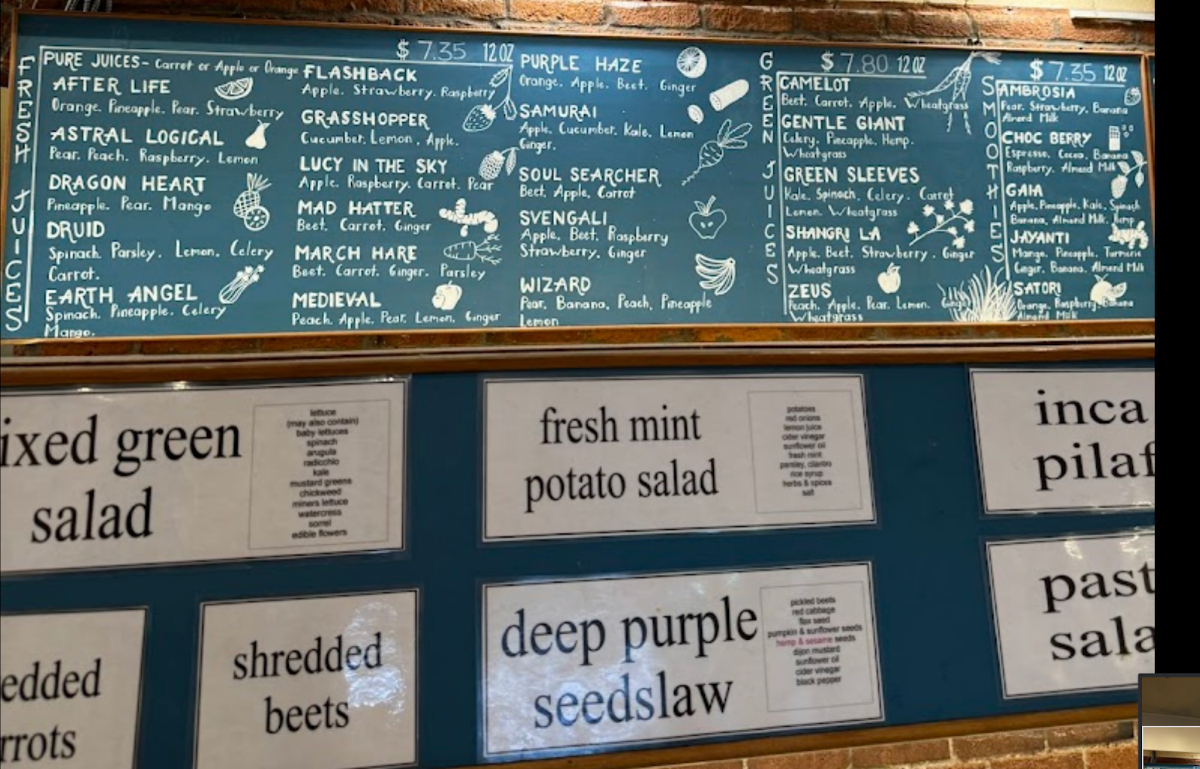 FRESH JUICES
$7.35 12oz
PURE JUICES- Carrot or Apple or Orange
AFTER LIFE
Orange. Pineapple. Pear. Strawberry
ASTRAL LOGICAL
Pear. Peach. Raspberry. Lemon
DRAGON HEART
Pineapple. Pear. Mango
DRUID
Spinach. Parsley. Lemon. Celery
Carrot.
EARTH ANGEL
Spinach. Pineapple. Celery
Mango.
FLASHBACK
Apple. Strawberry. Raspberry
GRASSHOPPER
Cucumber. Lemon. Apple.
LUCY IN THE SKY
Apple. Raspberry. Carrot. Pear
MAD HATTER
Beet. Carrot. Ginger
MARCH HARE
Beet. Carrot. Ginger. Parsley
MEDIEVAL
Peach. Apple. Pear. Lemon. Ginger
PURPLE HAZE
Orange. Apple. Beet. Ginger
SAMURAI
Apple. Cucumber. Kale. Lemon
Ginger.
SOUL SEARCHER
Beet. Apple. Carrot
SVENGALI
Apple. Beet. Raspberry
Strawberry. Ginger
WIZARD
Pear, Banana, Peach, Pineapple
Lemon
GREEN JUICES
$7.80 12oz
CAMELOT
Beet. Carrot. Apple. Wheatgrass
GENTLE GIANT
Celery. Pineapple. Hemp.
Wheatgrass
GREEN SLEEVES
Kale. Spinach. Celery. Carrot
Lemon. Wheatgrass
SHANGRI LA
Apple. Beet. Strawberry. Ginger
Wheatgrass
ZEUS
Peach. Apple. Pear. Lemon. Ginger
Wheatgrass
SMOOTHIES
$7.35 12oz
AMBROSIA
Pear, Strawberry, Banana
Almond Milk
CHOC BERRY
Espresso, Cocoa, Banana
Raspberry, Almond Milk
GAIA
Apple, Pineapple, Kale, Spinach
Banana, Almond Milk, Hemp
JAYANTI
Mango, Pineapple, Turmeric
Ginger, Banana, Almond Milk
SATORI
Orange, Raspberry, Banana
Almond Milk
ixed green
salad
lettuce
(may also contain)
baby lettuces
spinach
arugula
radicchio
kale
mustard greens
chickweed
miners lettuce
watercress
sorrel
edible flowers
fresh mint
potato salad
potatoes
red onions
lemon juice
cider vinegar
sunflower oil
fresh mint
parsley, cilantro
rice syrup
herbs & spices
salt
inca
pilaf
edded
rrots
shredded
beets
deep purple
seedslaw
pickled beets
red cabbage
flax seed
pumpkin & sunflower seeds
hemp & sesame seeds
dijon mustard
sunflower oil
cider vinegar
black pepper
past
sala